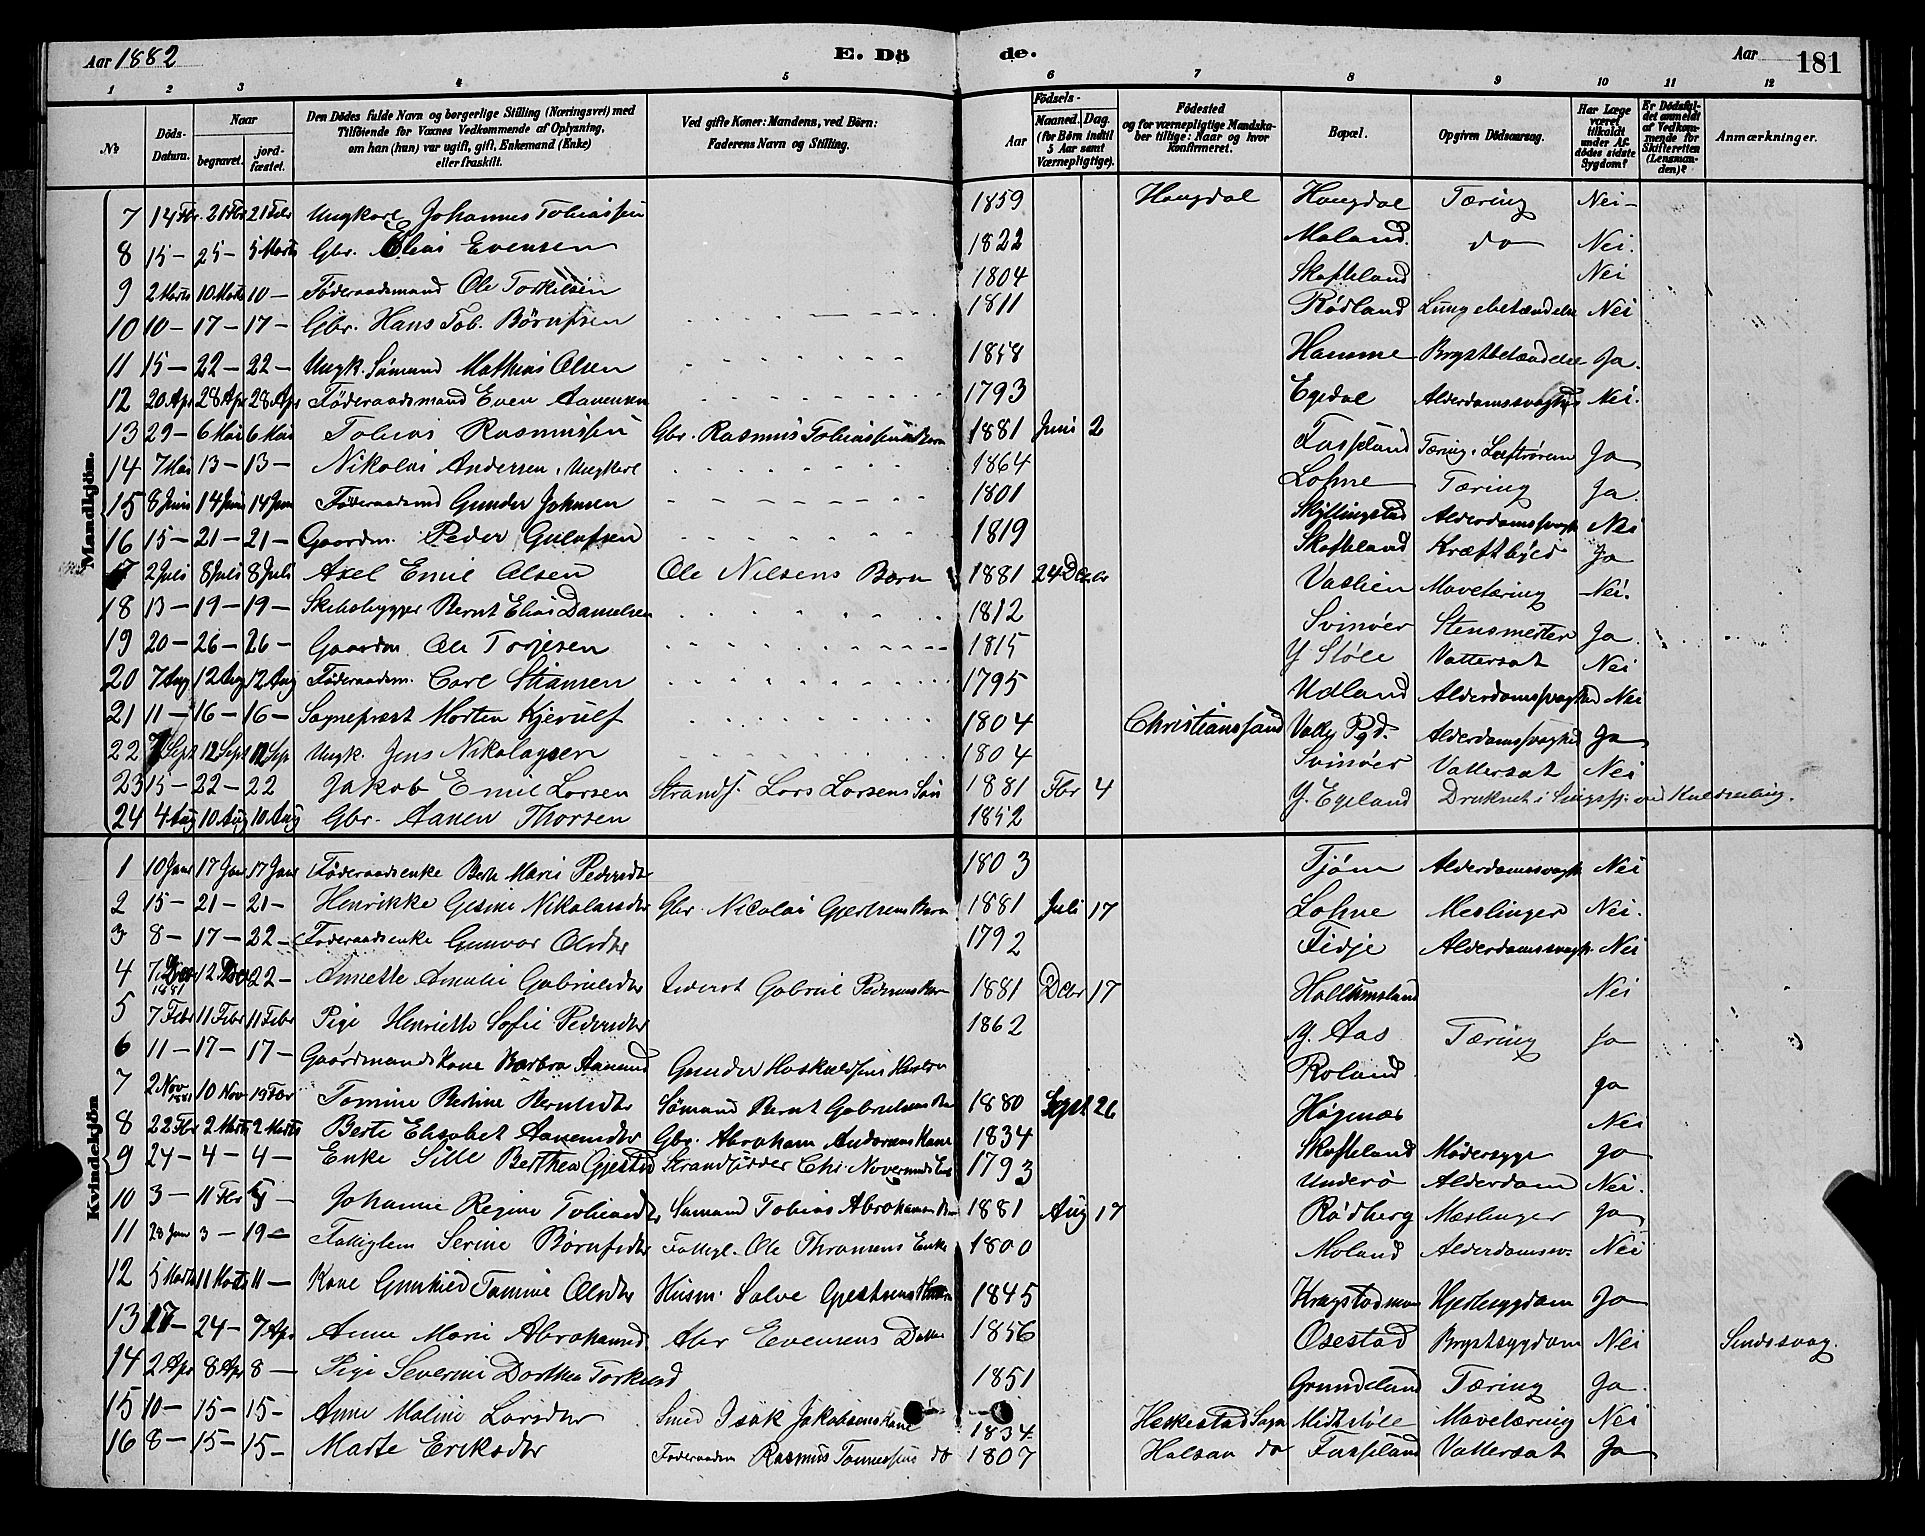 Aar 1882 E. Döde. Aar 181
1 2 3 4 5 6 7 8 9 10 11 12
No
Döds-Datum.
Naar begravet. jordfæstet.
Den Dödes fulde Navn og borgerlige Stilling (Næringsvei) med Tilföiende for Voxnes Vedkommende af Oplysning, om han (hun) var ugift, gift, Enkemand (Enke) eller fraskilt.
Ved gifte Koner: Mandens, ved Börn: Faderens Navn og Stilling.
Födsels- Aar Maaned. Dag. (for Börn indtil 5 Aar samt Værnepligtige).
Födested og for værnepligtige Mandskaber tillige: Naar og hvor konfirmeret.
Bopæl.
Opgiven Dödsaarsag.
Har Læge været tilkaldt under Afdödes sidste Sygdom?
Er Dödsfaldet anmeldt af Vedkommende for Skifteretten (Lensmanden)?
Anmærkninger.
Mandkjön.
7 14 Fbr. 21 Fbr 21 Febr Ungkarl Johannes Tobiassen 1859 Haugdal Haugdal Tæring Nei
8 15 – 25 – 5 Marts Gbr. Elias Evensen 1822 Moland do Nei.
9 2 Marts 10 Marts 10 – Föderaadsmand Ole Torkilsen 1804 Skofteland Nei
10 10 – 17 – 17 – Gbr. Hans Tob. Börufsen 1811 Rödland Lungebetændelse Nei
11 15 – 22 – 22 – Ungk. Sömand Mathias Olsen 1858 Hamme Brystbetændelse Ja.
12 20 Apr 28 Apr 28 Apr Föderaadsmand Even Aanensen 1793 Egedal Alderdomssvaghed Nei.
13 29 – 6 Mai 6 Mai Tobias Rasmussen Gbr. Rasmus Tobiassens Barn 1881 Juni 2 Fasseland Tæring i Luftrøren Ja
14 7 Mai 13 – 13 – Nikolai Andersen, Ungkarl 1864 Lohne Tæring Ja.
15 8 Juni 14 Juni 14 Juni Föderaadsmd Gunder Johnsen 1801 Skjllingstad Alderdomssvagh Nei
16 15 – 21 – 21 – Gaardm. Peder Gulufsen 1819 Skofteland Kræftbyld Ja
17 2 Juli 8 Juli 8 Juli Axel Emil Olsen Ole Nilsens Barn 1881 24 Decbr Vaslien Mavetæring Nei.
18 13 – 19 – 19 – Skibsbygger Bernt Elias Danielsen 1812 Svinöer Stensmerter Ja
19 20 – 26 – 26 – Gaardm Ole Torjesen 1815 Y Stöle Vattersot Nei
20 7 Aug 12 Aug 12 Aug Föderaadsm. Carl Stiansen 1795 Udland Alderdomssvaghed Nei
21 11 – 16 – 16 – Sogneprest Morten Kjerulf 1804 Christianssand Valle Pgd. Alderdomssvaghed Ja
22 7 Sept 12 Sept 12 Sep Ungk. Jens Nikolaysen 1804 Svinöer Vattersot Nei
23 15 – 22 – 22 Jakob Emil Larsen Strands. Lars Larsens Sön 1881 Fbr 4 Y. Egeland Druknet i ved Kuldseiling.
24 4 Aug 10 Aug 10 Aug Gbr. Aanen Thorsen 1852
Kvindekjön
1 10 Janr 17 Jan 17 Janr Föderaadsenke Berte Marie Pedersdtr 1803 Tjöm Alderdomssvagh Nei
2 15 – 21 – 21 – Henrikke Gesine Nikolaisdtr Gbr. Nicolai Gjertsens Barn 1881 Juli 17 Lohne Meslinger Nei.
3 8 – 17 – 22 – Föderaadsenke Gunvor Olsdtr 1792 Fidje Alderdomssvagh. Nei
4 7 Decbr 1881 12 Decbr 22 – Annette Amalie Gabrielsdtr Gabriel Pedersens Barn 1881 Decbr 17 Hallumsland Nei
5 7 Febr 11 Febr 11 Febr Pige Henriette Sofie Pedersdtr 1862 Y. Aas Tæring Ja
6 11 – 17 – 17 – Gaardmandskone Barbra Aanensd Gunder Haskoldsens Roland Ja
7 2 Nov 1881 10 Nov 19 Febr Tomine Bertine Berntsdtr Sömand Bernt Gabrielsens Barn 1880 Sept 26 Högenæs Nei
8 22 Fbr 2 Marts 2 Marts Berte Elisabet Aanensdtr Gbr. Abraham Andersens Kone 1834 Skofteland Modersyge Ja
9 24 – 4 – 4 – Enke Sille Berthea Gjestsd Strandsidder Chr. Enke 1793 Underö Alderdom Nei.
10 3 – 11 Fbr 5 – Johanne Regine Tobiasdtr Sömand Tobias Abrahamsens Barn 1881 Aug 17 Rödberg Mæslinger Ja
11 28 Jan 3 – 19 – Fattiglem Serine Börufsdtr Fattigl. Ole Thromsens Enke 1800 Moland Alderdomssv. Nei
12 5 Marts 11 Marts 11 – Kone Gunhild Tomine Olsdtr Husm. Salve Gjertsens 1845 Krogstadmoen Hjertesygdom Ja
13 17 – 24 – 7 Apr Anne Marie Abrahamsd Abr Evensens Datter 1856 Osestad Brystsygdom Nei Sindssvag.
14 2 Apr 8 Apr 8 – Pige Severine Dorthea Torkelsd 1851 Grundeland Tæring Ja.
15 10 – 15 – 15 – Anne Maline Larsdtr Smed Isak Jakobsens Kone 1834 Heskestad Sogn Midtstöle Mavetæring Nei
16 8 – 15 – 15 – Marte Eriksdtr Föderaadsm Rasmus Tønnessens do 1807 Halsaa do Fasseland Vattersot Ja